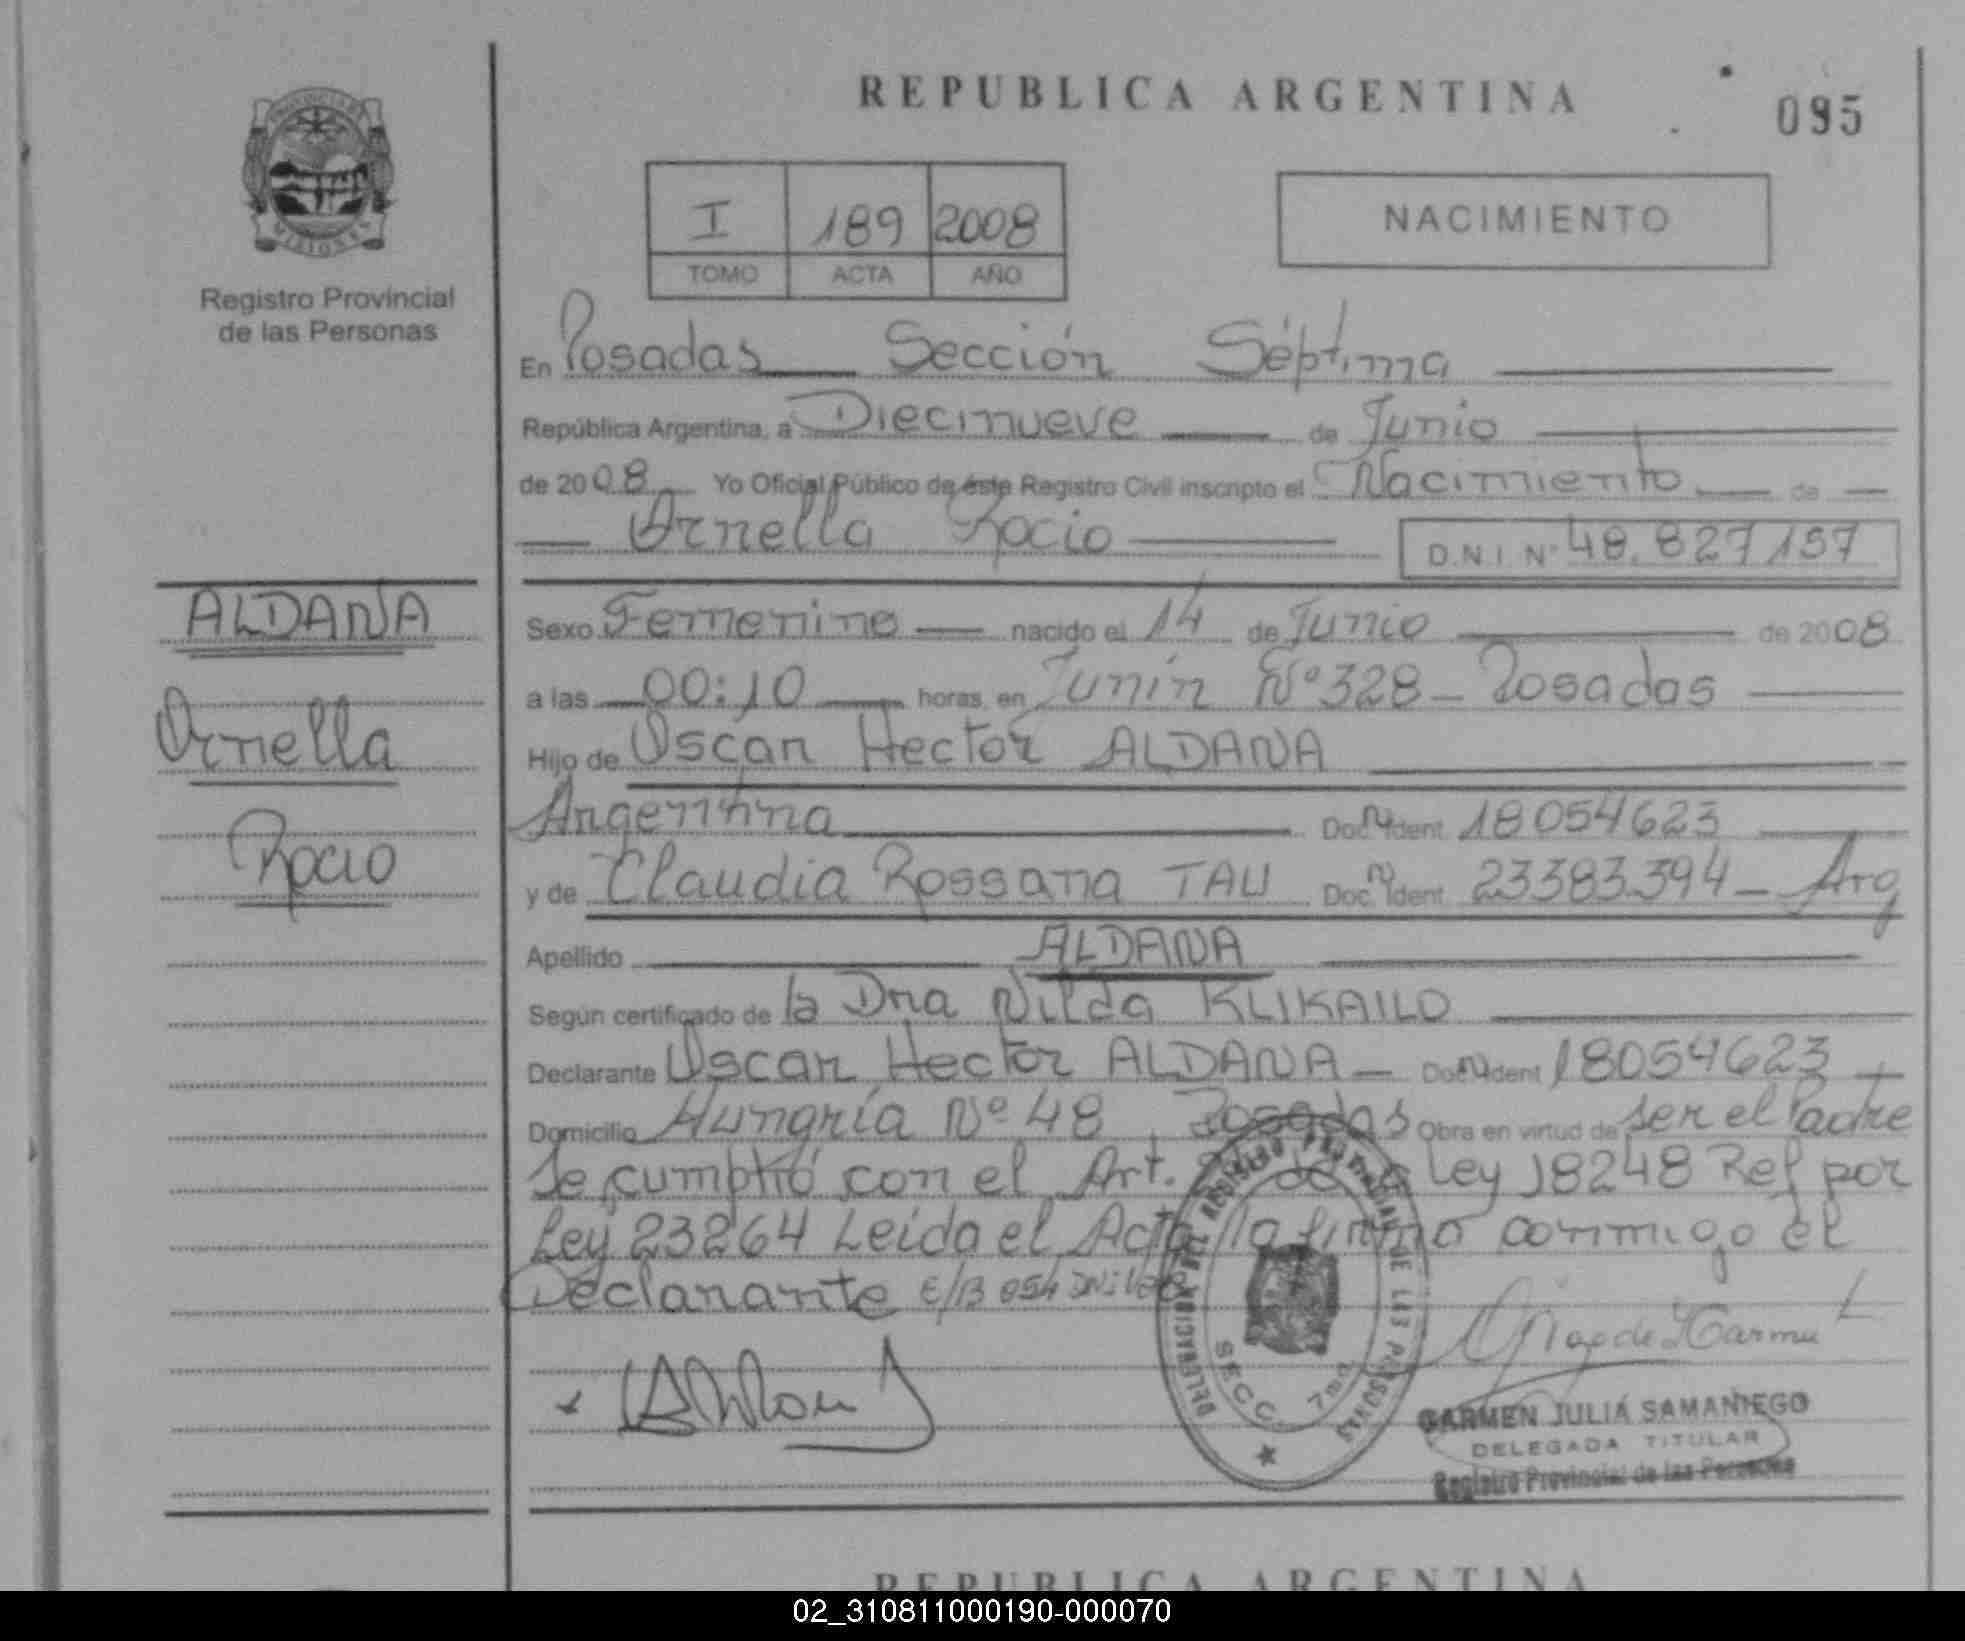 REPUBLICA ARGENTINA
095
PROVINCIA DE
MISIONES
Registro Provincial
de las Personas
I 189 2008
TOMO ACTA AÑO
NACIMIENTO
En Posadas Sección Séptima
República Argentina, a Diecinueve de Junio
de 2008 Yo Oficial Público de éste Registro Civil inscripto el Nacimiento de
Ornella Rocio D.N.I. Nº 48.827157
ALDANA
Ornella
Rocio
Sexo Femenino nacido el 14 de Junio de 2008
a las 00:10 horas, en Junín Nº 328 - Posadas
Hijo de Oscar Hector ALDANA
Argentina Doc. N Ident. 18054623
y de Claudia Rossana TAU Doc. N Ident. 23383.394 - Arg
Apellido ALDANA
Según certificado de la Dra Nilda KLIKAILO
Declarante Oscar Hector ALDANA - Doc. N Ident 18054623
Domicilio Hungría Nº 48 Posadas Obra en virtud de ser el Padre
Se cumplió con el Art. de la Ley 18248 Ref por
Ley 23264 Leida el Acta la firma conmigo el
Declarante E/B 054
DELEGACION DEL REGISTRO PROVINCIAL DE LAS PERSONAS
SECC. 7ma
CARMEN JULIA SAMANIEGO
DELEGADA TITULAR
Registro Provincial de las Personas
REPUBLICA ARGENTINA
02_310811000190-000070